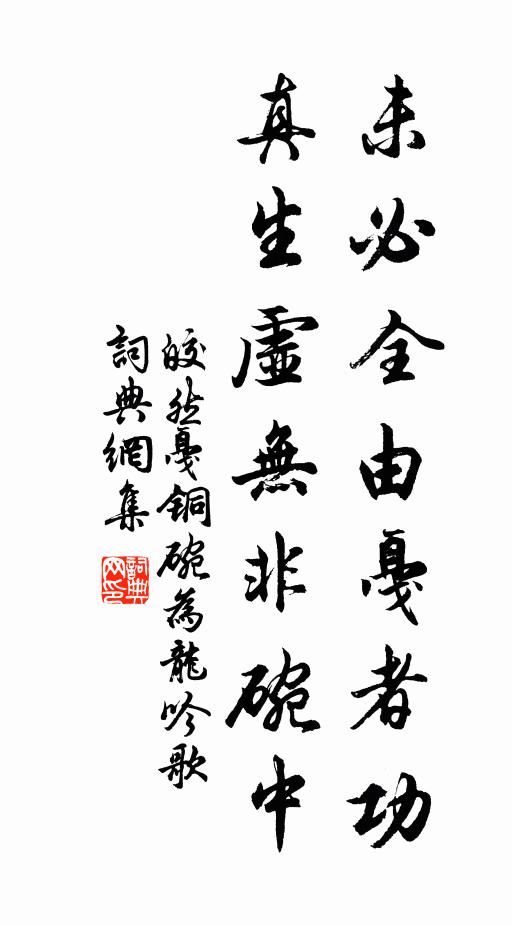 未必全由戛者功
真生虛無非碗中
皎然戛銅碗為龍吟歌
詞典網集
詞典網印